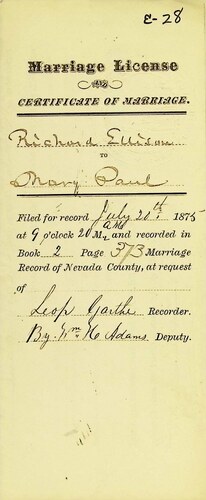 E-28
Marriage License
AND
CERTIFICATE OF MARRIAGE.
Richard Ellison
TO
Mary Paul
Filed for record July 20th 1875
at 9 o'clock 20 M. AM and recorded in
Book 2 Page 373 Marriage
Record of Nevada County, at request
of
Leop Garthe Recorder.
By Wm K Adams Deputy.